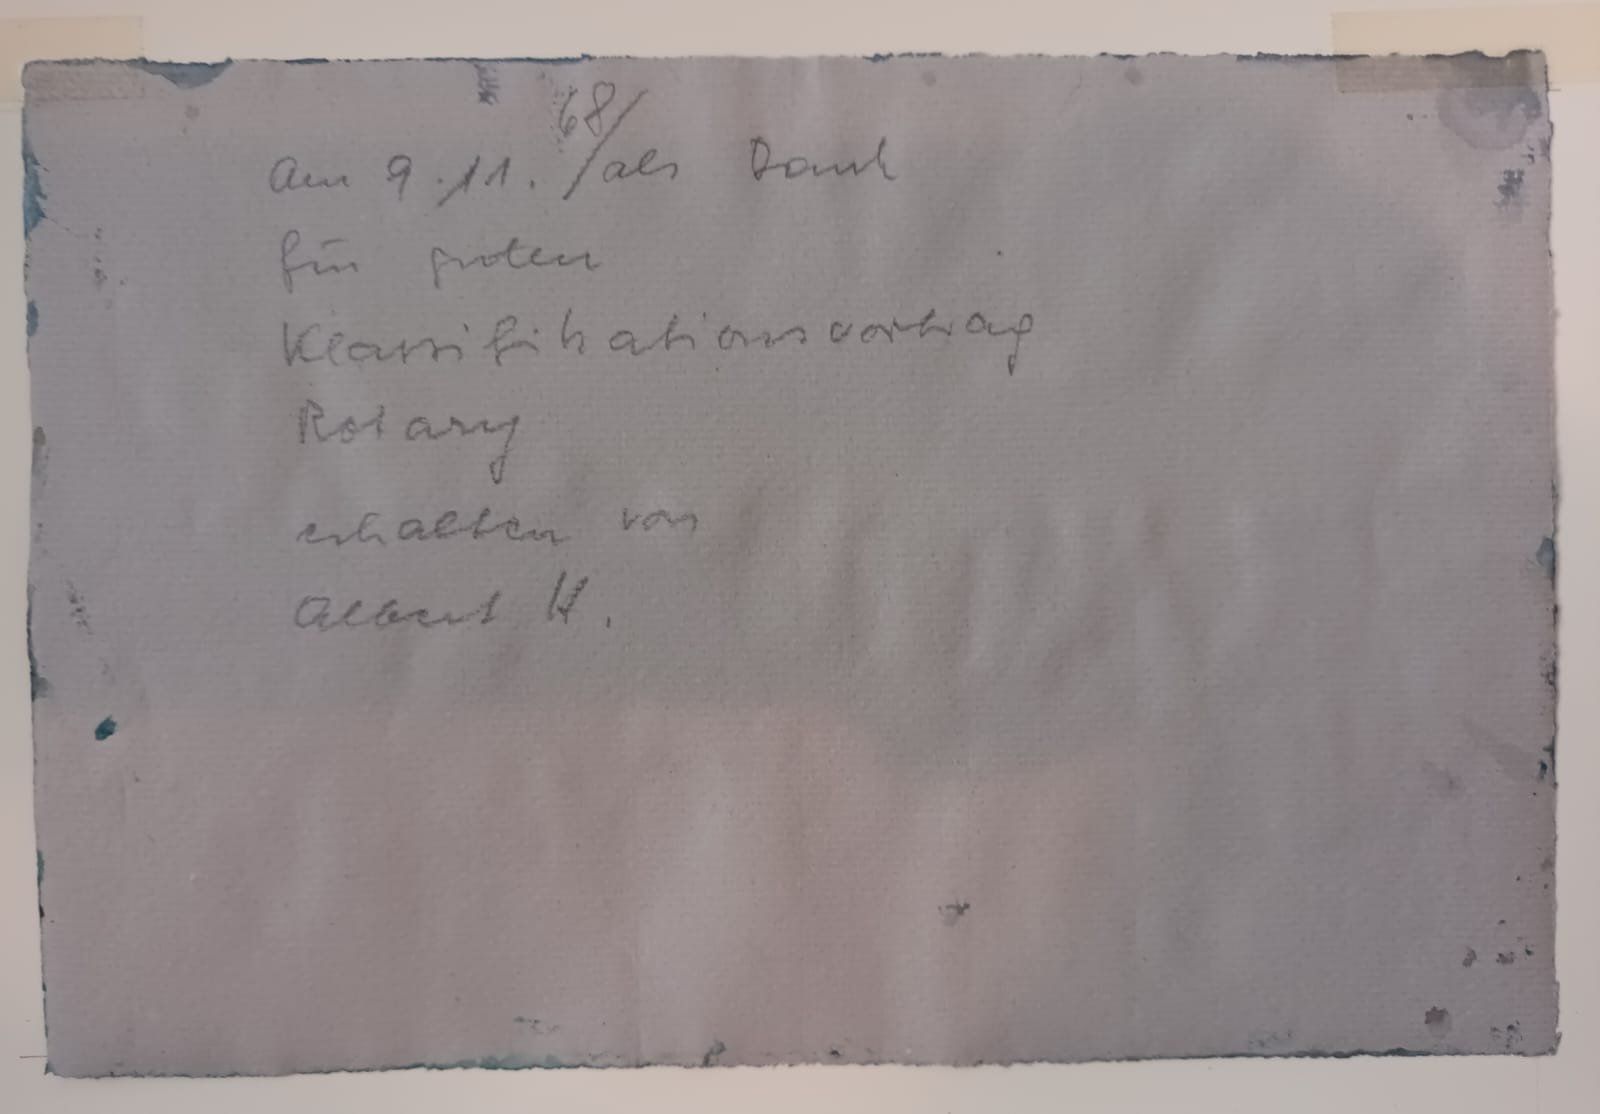 68/
am 9.11. / als Dank
für guten
Klassifikationsvortrag
Rotary
erhalten von
Albert H.